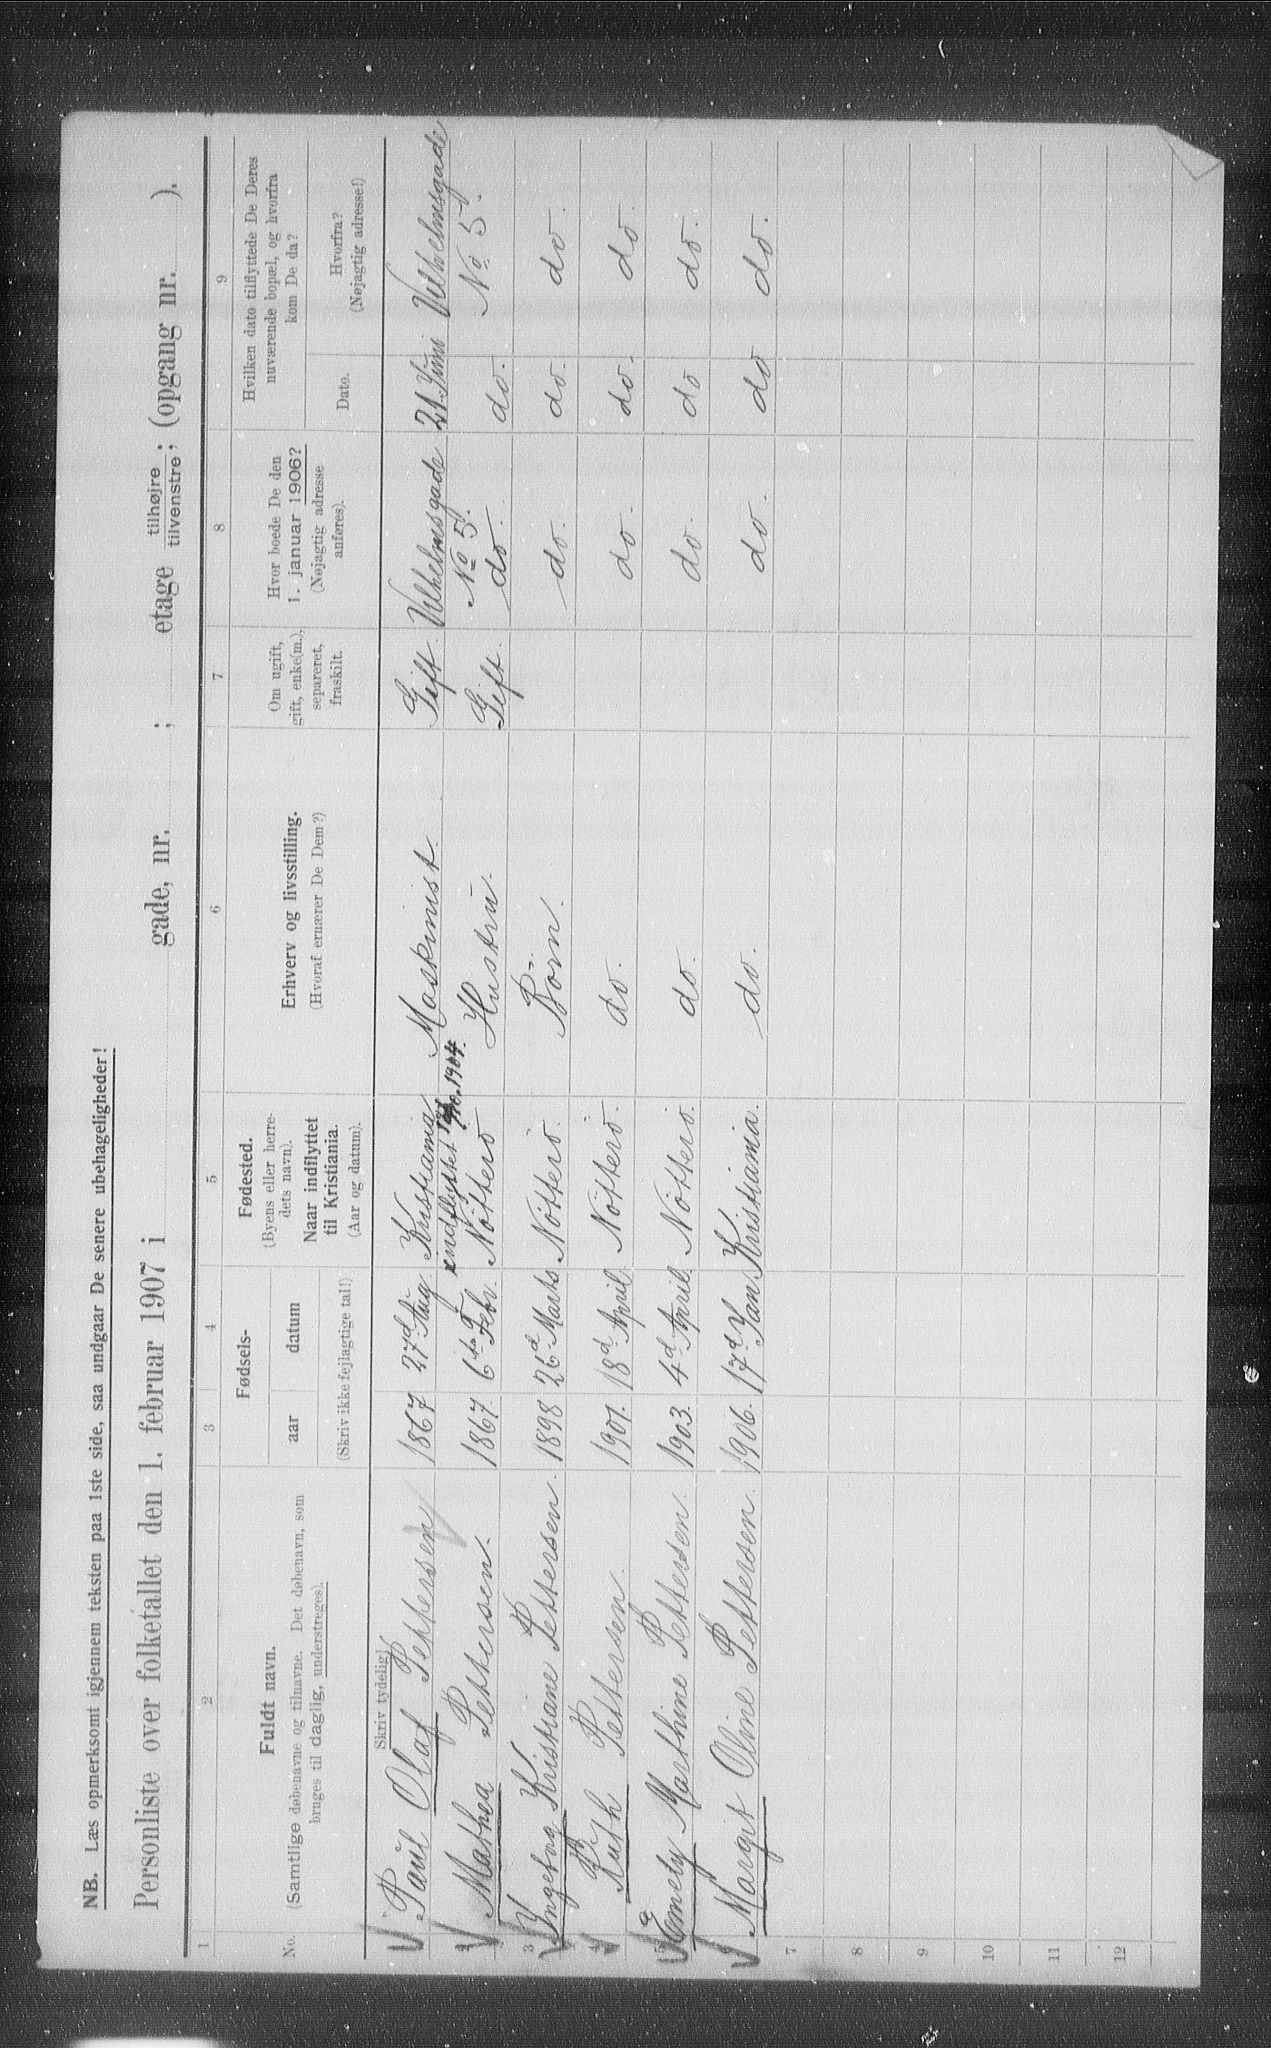 NB. Læs opmerksomt igjennem teksten paa 1ste side, saa undgaar De senere ubehageligheder!
Personliste over folketallet den 1. februar 1907 i gade, nr. ; etage tilhøjre tilvenstre; (opgang nr. ).
1 2 3 4 5 6 7 8 9
No. Fuldt navn.
(Samtlige døbenavne og tilnavne. Det døbenavn, som
bruges til daglig, understreges).
Skriv tydelig!
Fødsels-
aar datum
(Skriv ikke fejlagtige tal!)
Fødested.
(Byens eller herre-
dets navn).
Naar indflyttet
til Kristiania.
(Aar og datum).
Erhverv og livsstilling.
(Hvoraf ernærer De Dem?)
Om ugift,
gift, enke(m.),
separeret,
fraskilt.
Hvor boede De den
1. januar 1906?
(Nøjagtig adresse
anføres).
Hvilken dato tilflyttede De Deres
nuværende bopæl, og hvorfra
kom De da?
Dato. Hvorfra?
(Nøjagtig adresse!)
Paul Olaf Pettersen 1867 27d Aug. Kristiania Maskinist. Gift. Vilhelmsgade No 5. 21 Juni Vilhelmsgade No 5.
indflyttet 1904.
Mathea Pettersen. 1867. 6te Febr. Nötterö Hustru. Gift. do. do.
3 Ingeborg Kristiane Pettersen. 1898 26d Marts Nötterö. Börn. do. do. do.
4 Ruth Pettersen. 1901. 18d April. Nötterö. do. do. do. do.
5 Emely Marthine Pettersen. 1903. 4d April. Nötterö. do. do. do do.
Margit Oline Pettersen. 1906. 17d Jan Kristiania. do. do. do do.
7
8
9
10
11
12